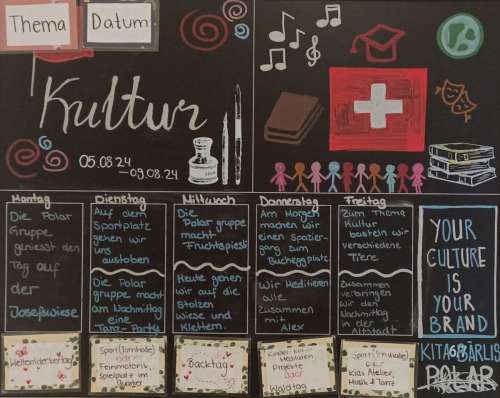 Thema
Datum
Kultur
05.08.24
-09.08.24
Montag
Dienstag
Mittwoch
Donnerstag
Freitag
Die Polar
Gruppe
geniesst den
Tag auf
der
Josefswiese
Auf dem
Sportplatz
gehen wir
uns
austoben
Die Polar
gruppe macht
am Nachmittag
eine
Tanz-Party
Die
Polar gruppe
macht
Fruchtspiess
Heute gehen
wir auf die
Stolzen
wiese und
Klettern.
Am Morgen
machen wir
einen Spazier-
gang zum
Bucheggplatz
Wir Meditieren
alle
zusammen
mit
Alex
Zum Thema
Kultur
basteln wir
verschiedene
Tiere.
Zusammen
verbringen
wir den
Nachmittag
in der
Altstadt
YOUR
CULTURE
IS
YOUR
BRAND
KITA BÄRLI
POLAR
Weltentdeckertag
Sport (Turnhalle)
oder
Feinmotorik,
Spielplatz im
Quartier
Backtag
Kinder-Konf.-
Meditation
Projekte
oder
Waldtag
Sport (Turnhalle)
etc.
Kids Atelier,
Musik & Tanz